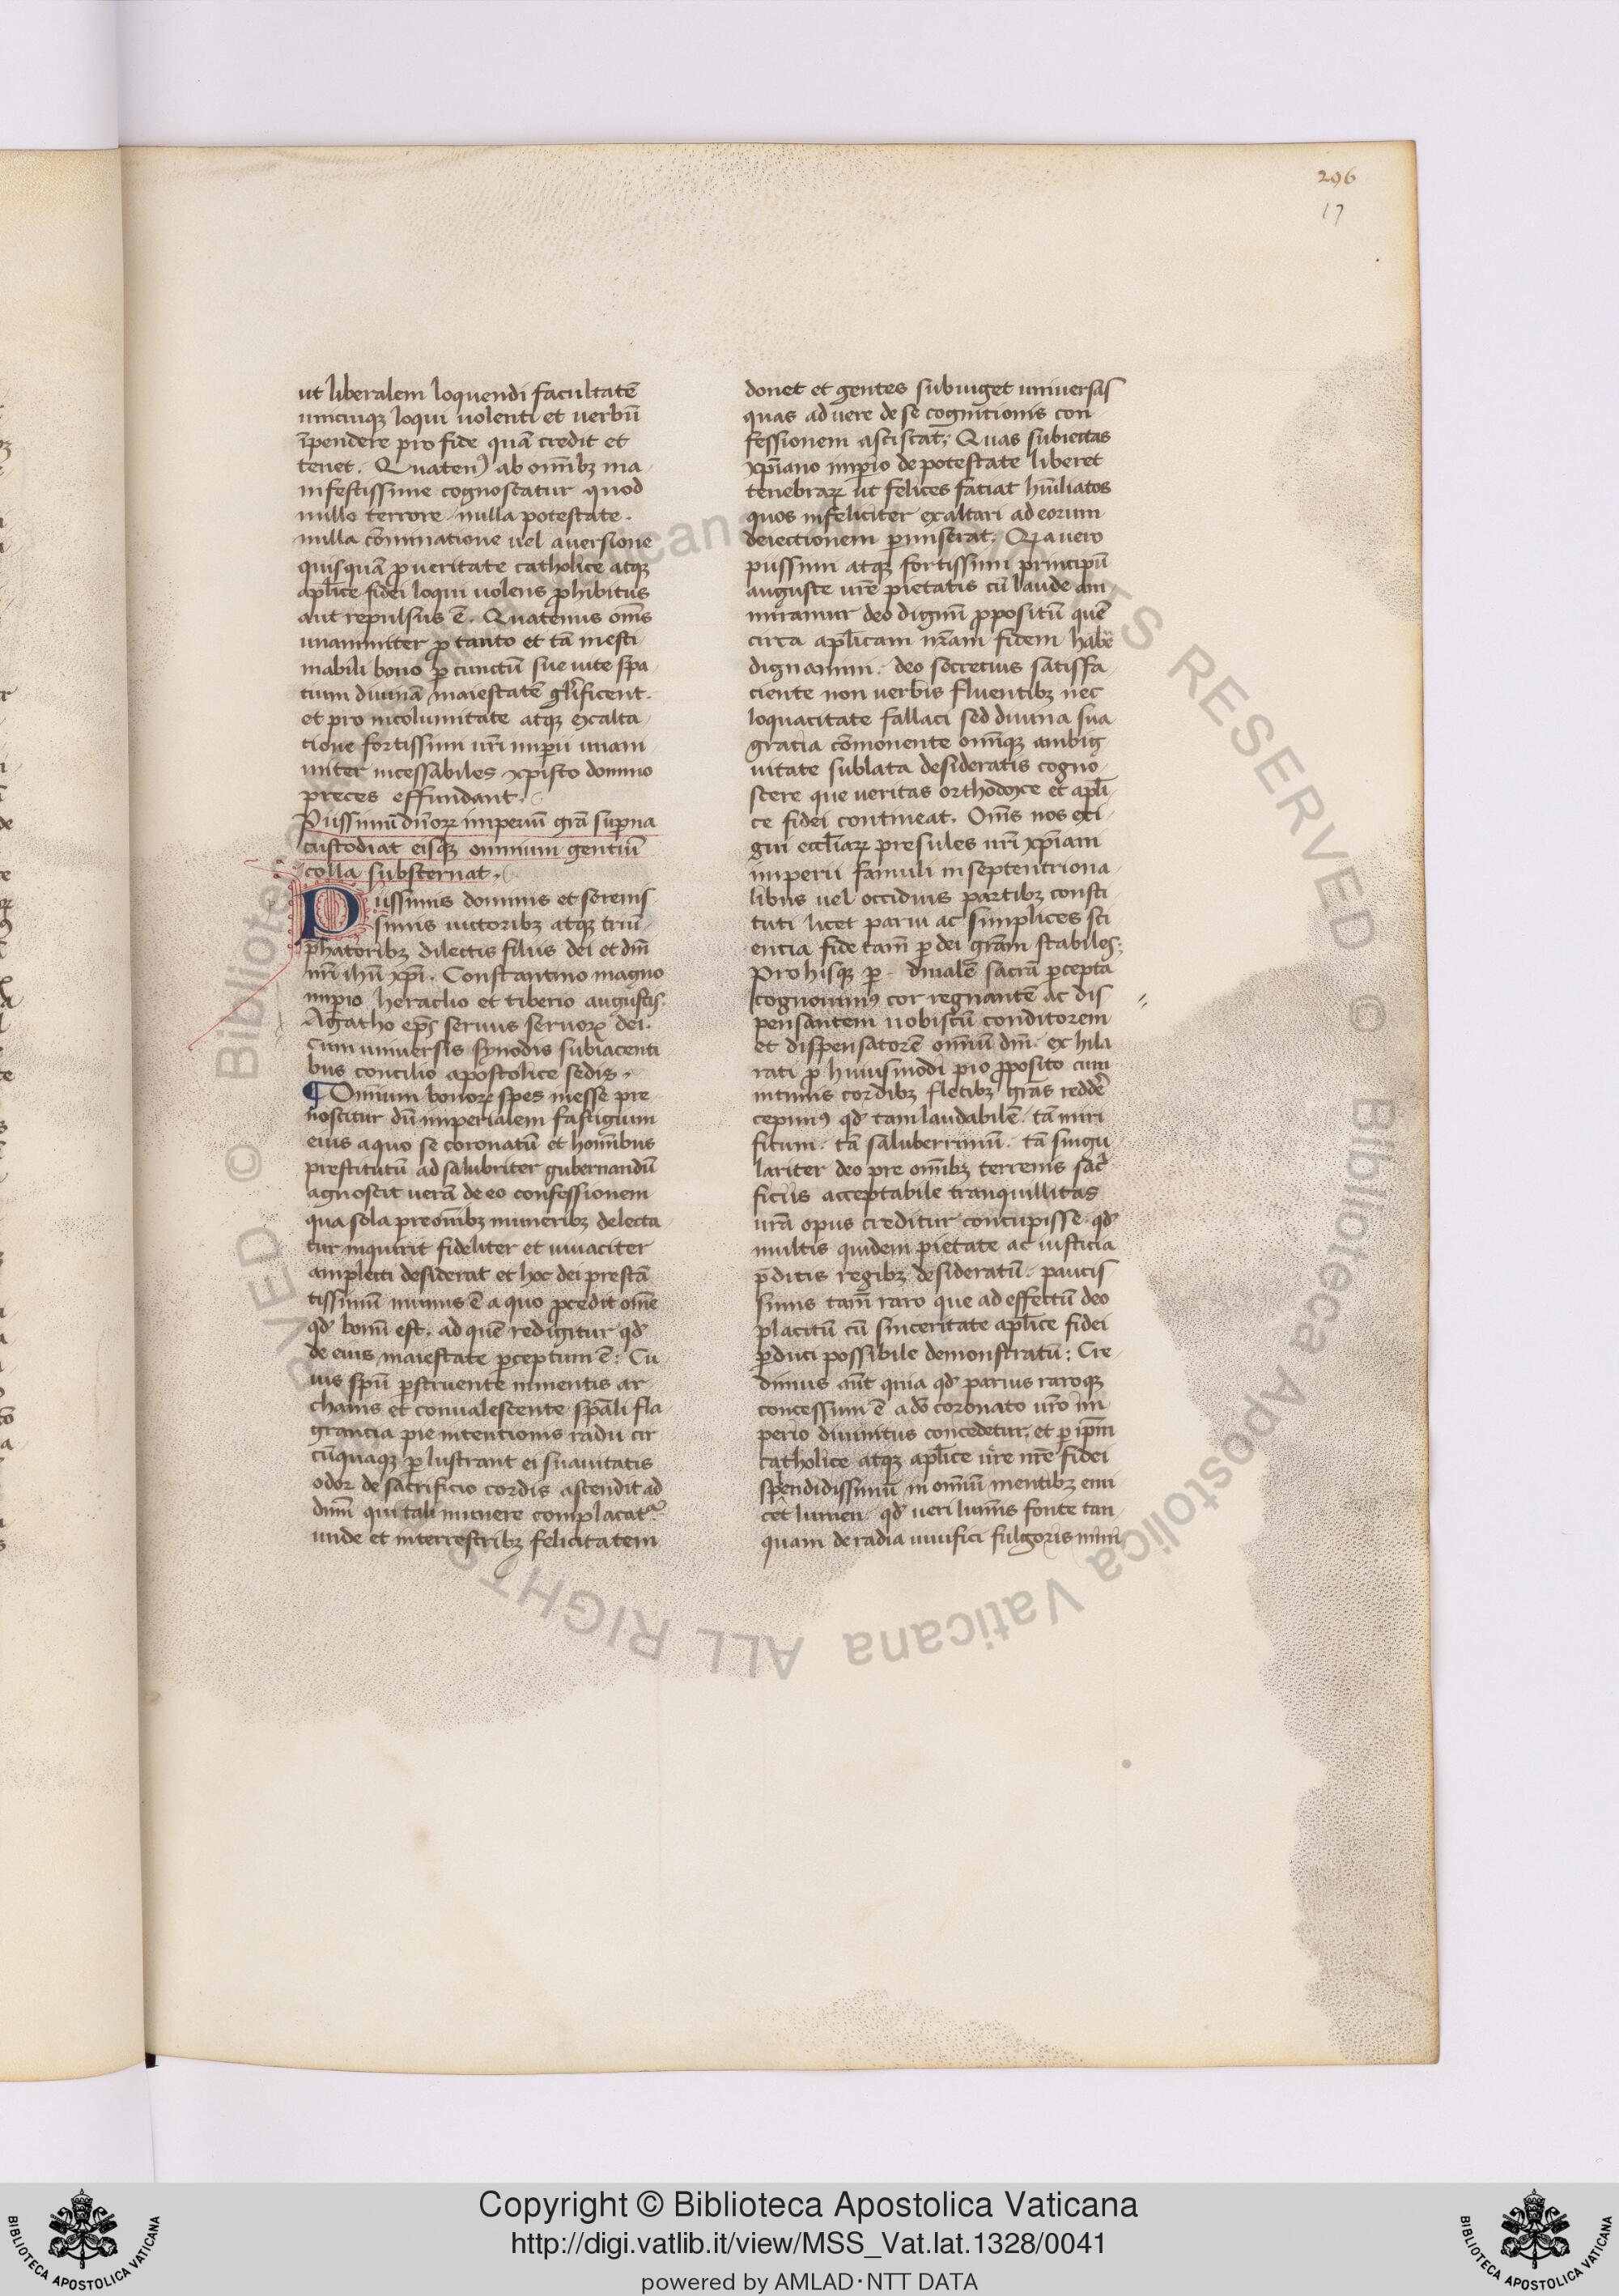 296
17
ut liberalem loquendi facultatē
unicuiqꝫ loqui uolenti et uerbū
īpendere pro fide quā credit et
tenet. Quatenꝰ ab om̄ibꝫ ma
nifestissime cognoscatur quod
nullo terrore. nulla potestate.
nulla cōminatione uel auersione
quisquā ꝓ ueritate catholice atqꝫ
apl̄ice fidei loqui uolens ꝓhibitus
aut repulsus ē. Quatenus om̄s
unanimiter ꝓ tanto et tā inesti
mabili bono ꝑ cunctū sue uite spa
tium diuinā maiestatē gl̄ificent.
et pro incolumitate atqꝫ exalta
tione fortissimi ur̄i imꝑii unani
miter incessabiles xp̄isto domino
preces effundant.
Piissimū dn̄oꝝ imperiū gr̄a suꝑna
custodiat eisqꝫ omnium gentiū
colla substernat.
Piissimis dominis et serenis
simis uictoribꝫ atqꝫ triū
phatoribꝫ dilectis filiis dei et dn̄i
nr̄i ihū xp̄i. Constantino magno
imꝑio heraclio et tiberio augustis.
Agatho ep̄s seruus seruoꝝ dei.
cum uniuersis synodis subiacenti
bus concilio apostolice sedis.
¶ Omnium bonoꝝ spes inesse pre
noscitur dū imperialem fastigium
eius a quo se coronatū et hom̄ibus
prestitutū ad salubriter gubernandū
agnoscit uerā de eo confessionem
qua sola pre om̄ibꝫ muneribꝫ delecta
tur inquirit fideliter et uiuaciter
amplecti desiderat et hoc dei prestā
tissimū munus ē a quo ꝓcedit om̄e
qd̓ bonū est. ad quē redigitur qd̓
de eius maiestate ꝑceptum ē: Cu
ius spū ꝑstruente in mentis ar
chanis et conualescente spāli fla
grantia pie intentionis radii cir
cūquaqꝫ ꝑlustrant ei suauitatis
odor de sacrificio cordis ascendit ad
dn̄m qui tali munere complacat᷑
unde et in terrestribꝫ felicitatem
donet et gentes subiuget uniuersas
quas ad uere de se cognitionis con
fessionem asciscat. Quas subiectas
xp̄iano imꝑio de potestate liberet
tenebraꝝ ut felices faciat hūiliatos
quos infeliciter exaltari ad eorum
deiectionem ꝑmiserat. Quia uero
piissimi atqꝫ fortissimi principū
auguste ur̄e pietatis cū laude am
miramur deo dignū ꝓpositū quē
circa apl̄icam nr̄am fidem habē
dignamini. deo secretius satisfa
ciente non uerbis fluentibꝫ nec
loquacitate fallaci sed diuina sua
gratia cōmonente omīqꝫ ambig
uitate sublata desideratis cogno
scere que ueritas orthodoxe et apl̄i
ce fidei contineat. Om̄s nos exi
gui eccl̄iaꝝ presules ur̄i xp̄iani
imperii famuli in septentriona
libus uel occiduis partibꝫ consti
tuti licet parui ac simplices sci
entia fide tam̄ ꝑ dei gr̄am stabiles:
Pro hisqꝫ ꝑ diualē sacrā ꝑcepta
cognouimꝰ cor regnantē ac dis
pensantem uobiscū conditorem
et dispensatorē om̄iū dn̄m. ex hila
rati ꝑ huiusmodi pio ꝓposito cum
intimis cordibꝫ fletibꝫ gr̄as reddē
cepimꝰ qd̓ tam laudabilē. tā miri
ficum. tā saluberrimū. tā singu
lariter deo pre om̄ibꝫ terrenis sacͥ
ficiis acceptabile tranquillitas
ur̄a opus creditur concupisse. qd̓
multis quidem pietate ac iusticia
p̄ditis regibꝫ desideratū. paucis
simis tam̄ raro que ad effectū deo
placitū cū sinceritate apl̄ice fidei
ꝑduci possibile demonstratū: Cre
dimus aūt quia qd̓ parius raroqꝫ
concessum ē a dō coronato ur̄o im
perio diuinitus concedetur. et ꝑ ip̄m
catholice atqꝫ apl̄ice ur̄e nr̄e fidei
spendidissimū in om̄iū mentibꝫ emi
cet lumen. qd̓ ueri lumīs fonte tan
quam de radia uiuifici fulgoris mini
Copyright © Biblioteca Apostolica Vaticana
http://digi.vatlib.it/view/MSS_Vat.lat.1328/0041
powered by AMLAD·NTT DATA
BIBLIOTECA APOSTOLICA VATICANA
BIBLIOTECA APOSTOLICA VATICANA